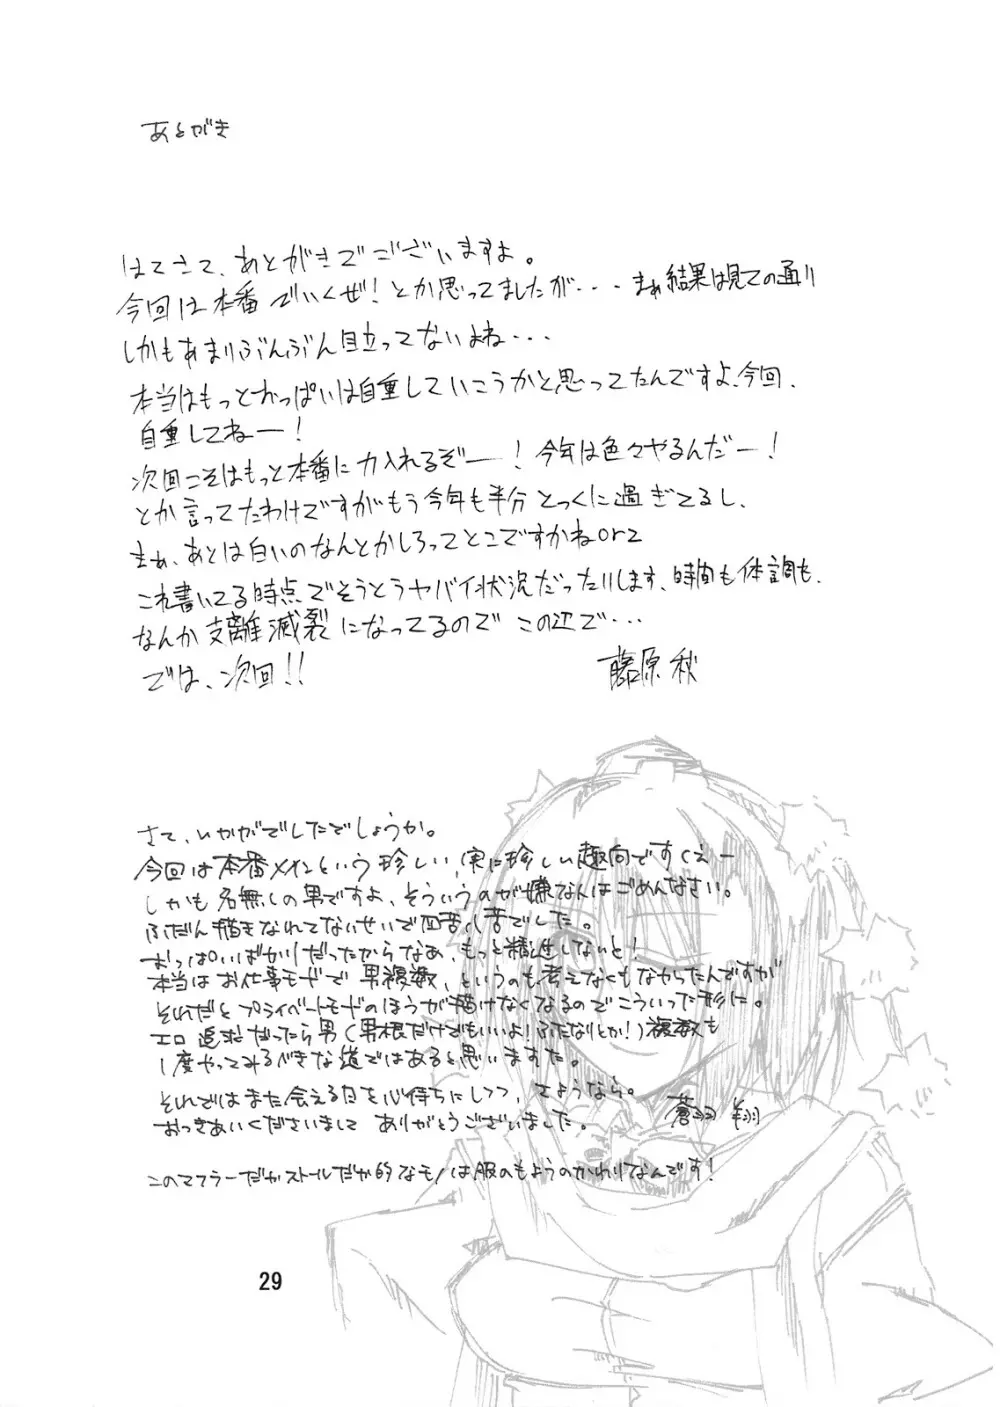 あとがき
はてさて、あとがきでございますよ。
今回は本番でいくぜ！とか思ってましたが・・・まぁ結果は見ての通り
しかもあまりぶんぶん目立ってないよね・・・
本当はもっとおっぱいは自重していこうかと思ってたんですよ、今回、
自重してねー！
次回こそはもっと本番に力入れるぞー！今年は色々やるんだー！
とか言ってたわけですがもう今年も半分とっくに過ぎてるし、
まぁ、あとは白いのなんとかしろってとこですかねorz
これ書いてる時点でそうとうヤバイ状況だったりします、時間も体調も、
なんか支離滅裂になってるのでこの辺で・・・
では、次回！！
藤原 秋
さて、いかがでしたでしょうか。
今回は本番メインという珍しい、実に珍しい趣向ですくえー
しかも名無しの男ですよ、そういうのが嫌な人はごめんなさい。
ふだん描きなれてないせいで四苦八苦でした。
おっぱいばかりだったからなあ、もっと精進しないと！
本当はお仕事モードで男複数、というのも考えなくもなかったんですが
それだとプライベートモードのほうが描けなくなるのでこういった形に。
エロ追求だったら男（男根だけでもいいよ！ふたなりとか！）複数も
1度やってみるべきな道ではあると思いますた。
それではまた会える日を心待ちにしつつ、さようなら。
おつきあいくださいまして ありがとうございました。
蒼羽 翔
このマフラーだかストールだか的なモノは服のもようのかわりなんです！
29